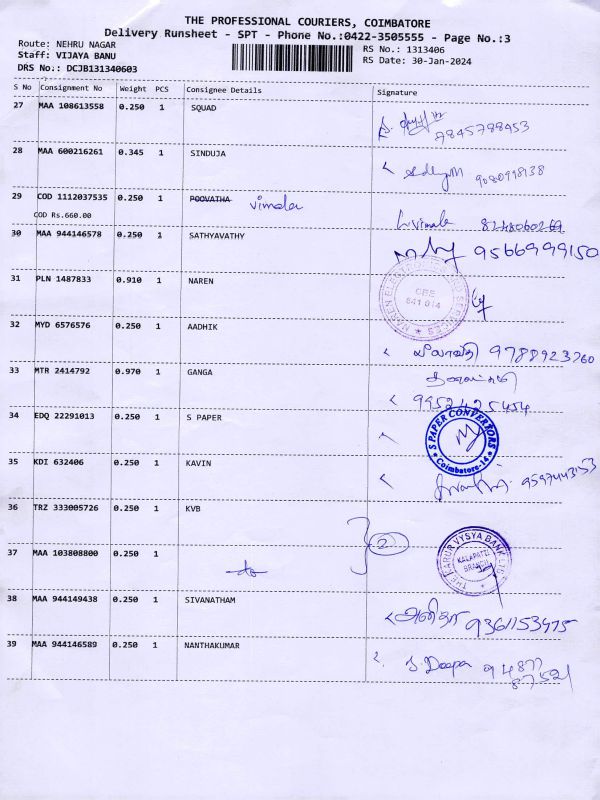 THE PROFESSIONAL COURIERS, COIMBATORE
Delivery Runsheet - SPT - Phone No.:0422-3505555 - Page No.:3
Route: NEHRU NAGAR
Staff: VIJAYA BANU
DRS No.: DCJB131340603
RS No.: 1313406
RS Date: 30-Jan-2024
S No Consignment No Weight PCS Consignee Details Signature
27 MAA 108613558 0.250 1 SQUAD
9845798953
28 MAA 600216261 0.345 1 SINDUJA
9080998138
29 COD 1112037535 0.250 1 POOVATHA vimala
COD Rs.660.00
vimala 8248060269
30 MAA 944146578 0.250 1 SATHYAVATHY
9566999150
31 PLN 1487833 0.910 1 NAREN
CBE
641 014
32 MYD 6576576 0.250 1 AADHIK
லீலாவதி 9788923760
33 MTR 2414792 0.970 1 GANGA
9952425454
34 EDQ 22291013 0.250 1 S PAPER
S PAPER CONVERTORS
Coimbatore-14
35 KDI 632406 0.250 1 KAVIN
9597443153
36 TRZ 333005726 0.250 1 KVB
2
THE KARUR VYSYA BANK LTD
KALAPATTI
BRANCH
37 MAA 103808800 0.250 1
do
38 MAA 944149438 0.250 1 SIVANATHAM
அனிதா 9361153475
39 MAA 944146589 0.250 1 NANTHAKUMAR
J. Deepa 94877
87521